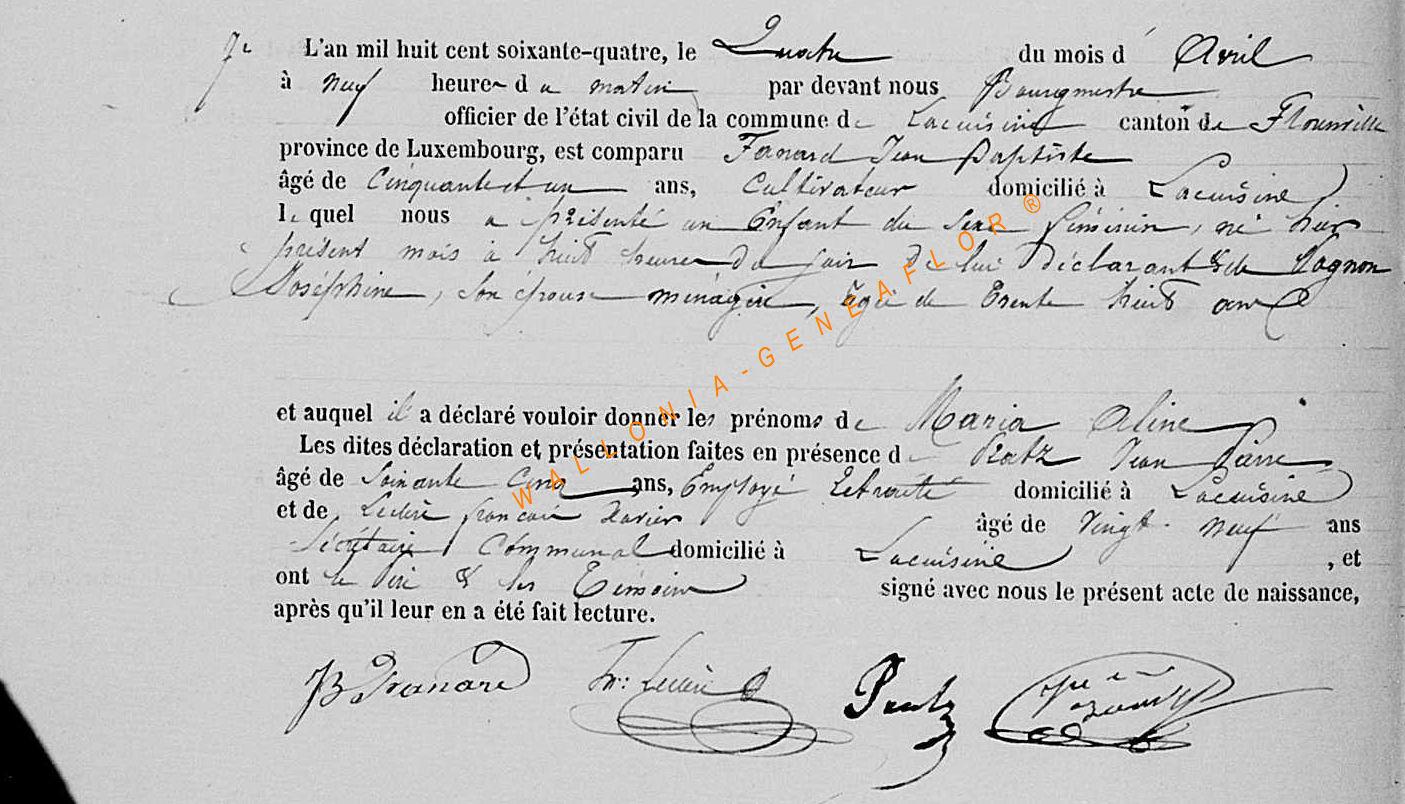 L'an mil huit cent soixante-quatre, le Quatre du mois d'Avril
à neuf heures du matin par devant nous Bourgmestre
officier de l'état civil de la commune de Lacuisine canton de Florenville
province de Luxembourg, est comparu Fanard Jean Baptiste
âgé de Cinquante et un ans, Cultivateur domicilié à Lacuisine
lequel nous a présenté un Enfant du Sexe féminin, né hier
présent mois à huit heures du soir de lui Déclarant & de
Joséphine, son épouse ménagère, âgée de Trente huit ans
et auquel il a déclaré vouloir donner les prénoms de Maria Aline
Les dites déclaration et présentation faites en présence de Jean Pierre
âgé de Soixante Cinq ans, Employé Retraité domicilié à Lacuisine
et de François Xavier âgé de Vingt-neuf ans
Secrétaire Communal domicilié à Lacuisine, et
ont le père & les Témoins signé avec nous le présent acte de naissance,
après qu'il leur en a été fait lecture.
WALLONIA-GENEAFLOR ®